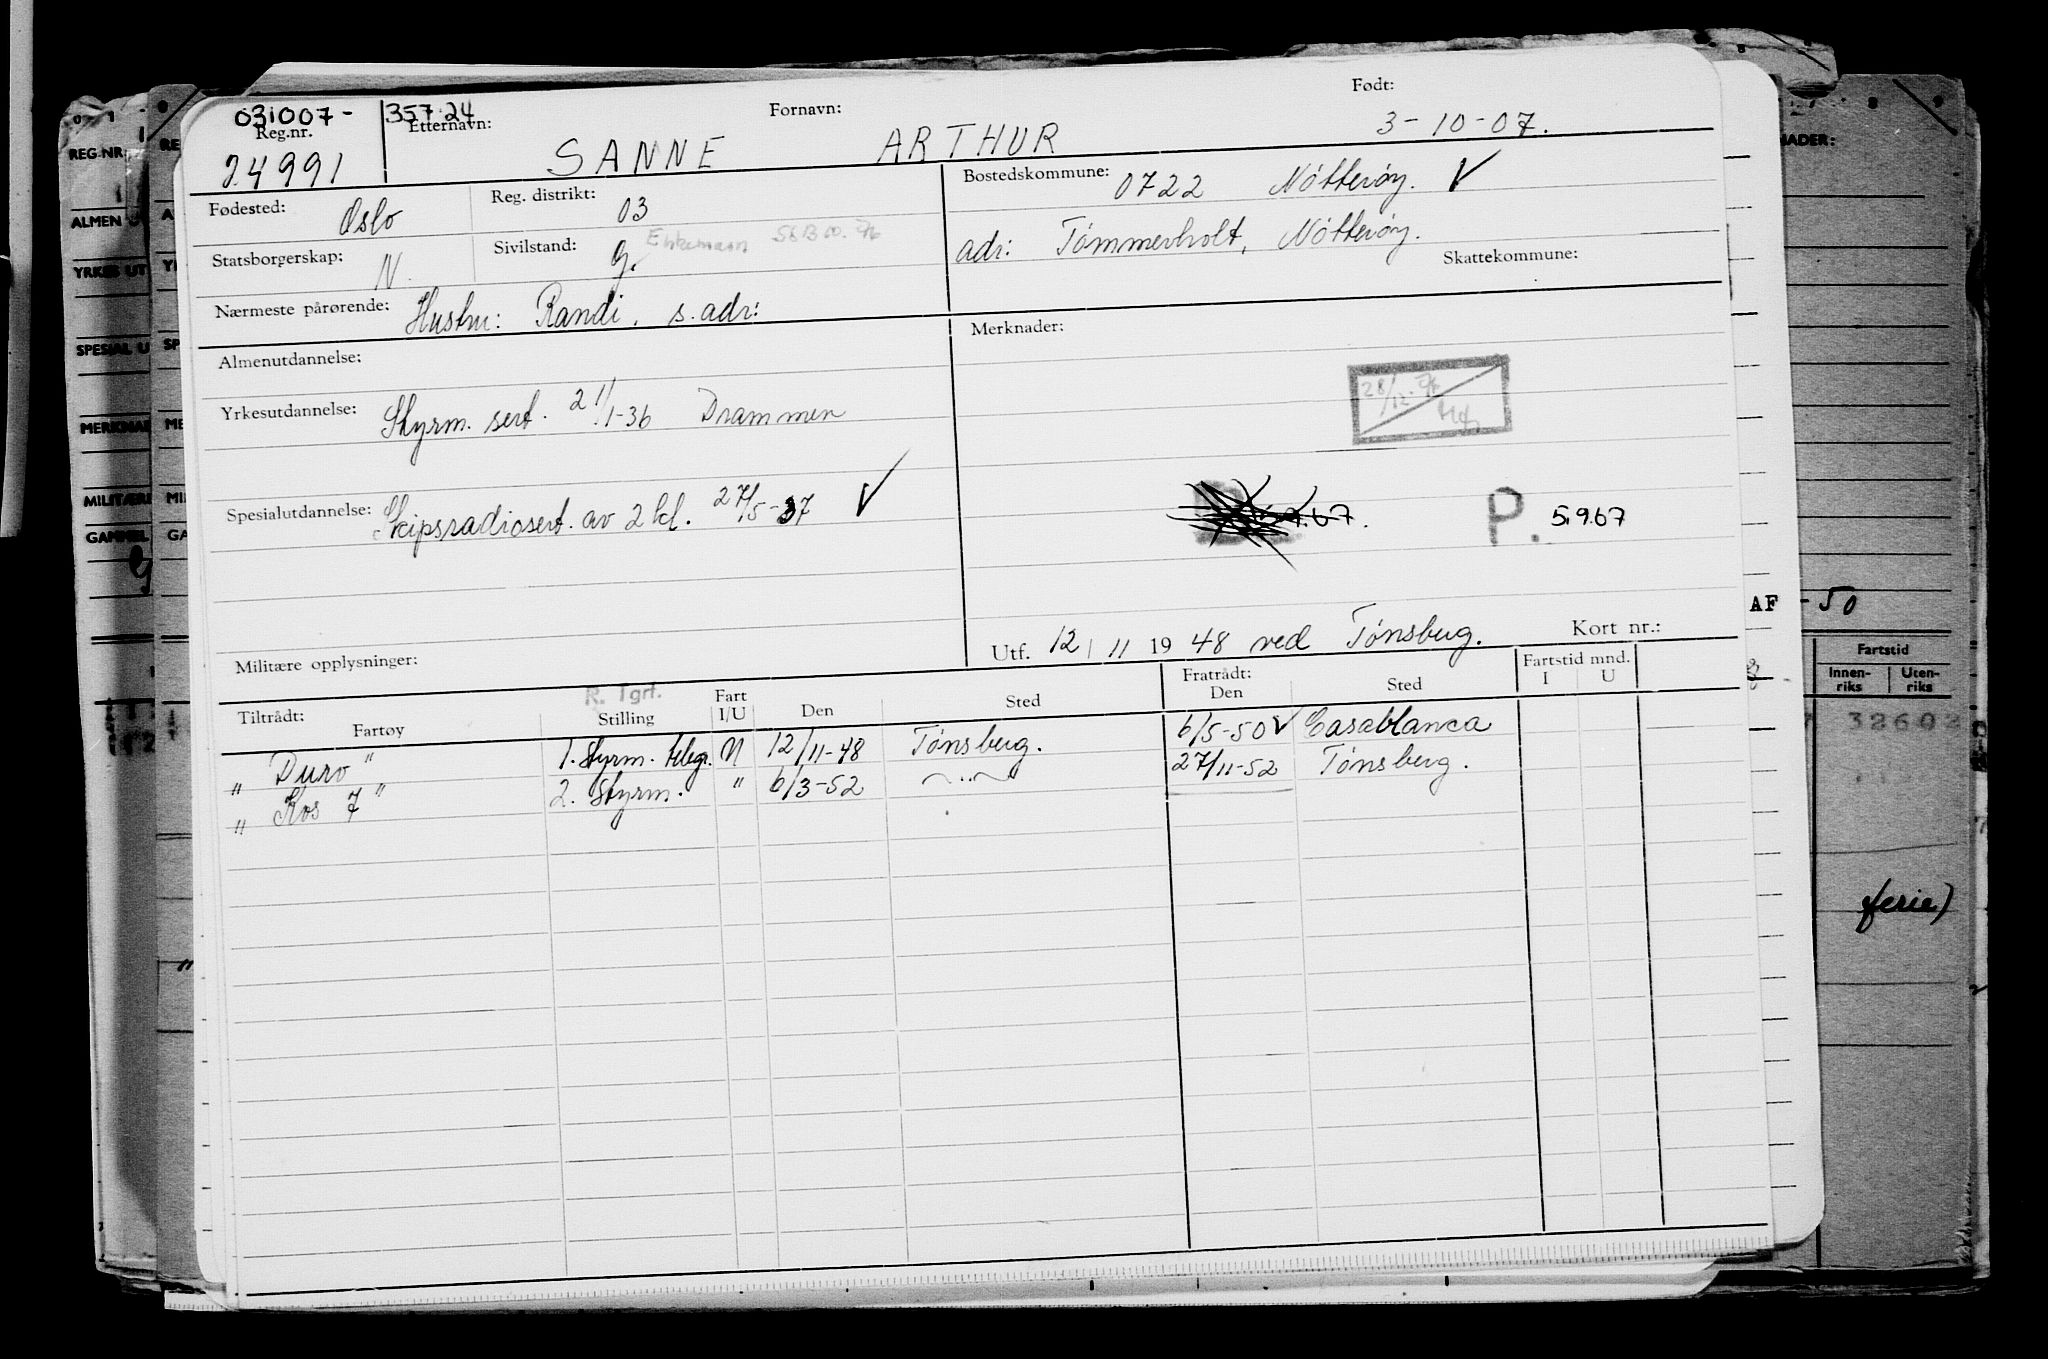 031007- 35724
Reg.nr. Etternavn: Fornavn: Født:
24991 SANNE ARTHUR 3-10-07.
Fødested: Oslo Reg. distrikt: 03
Bostedskommune: 0722 Nótterøy. ✓
Statsborgerskap: N. Sivilstand: g. Enkemann
adr: Tómmerholt, Nótterøy.
Skattekommune:
Nærmeste pårørende: Hustru: Randi. s. adr:
Almenutdannelse:
Merknader:
Yrkesutdannelse: Styrm. sert. 21/1-36 Drammen
28/12.
Spesialutdannelse: Skipsradiosert. av 2 kl. 27/5-37 ✓
5.9.67. P. 5.9.67
Militære opplysninger:
Utf. 12/11 1948 ved Tónsberg. Kort nr.:
R. Tgrf.
Tiltrådt: Fratrådt: Fartstid mnd.
Fartøy Stilling Fart I/U Den Sted Den Sted I U
" Duro " 1. Styrm. telegr. U 12/11-48 Tónsberg. 6/5-50 ✓ Casablanca
" Kos 7 " 2. Styrm. " 6/3-52 —"— 27/11-52 Tónsberg.
REG.NR.
ALMEN U
YRKES UT
SPESIAL U
MERKNAD
MILITÆRE
GAMMEL
AF -50
Fartstid
Innen-riks Uten-riks
32602
ferie)